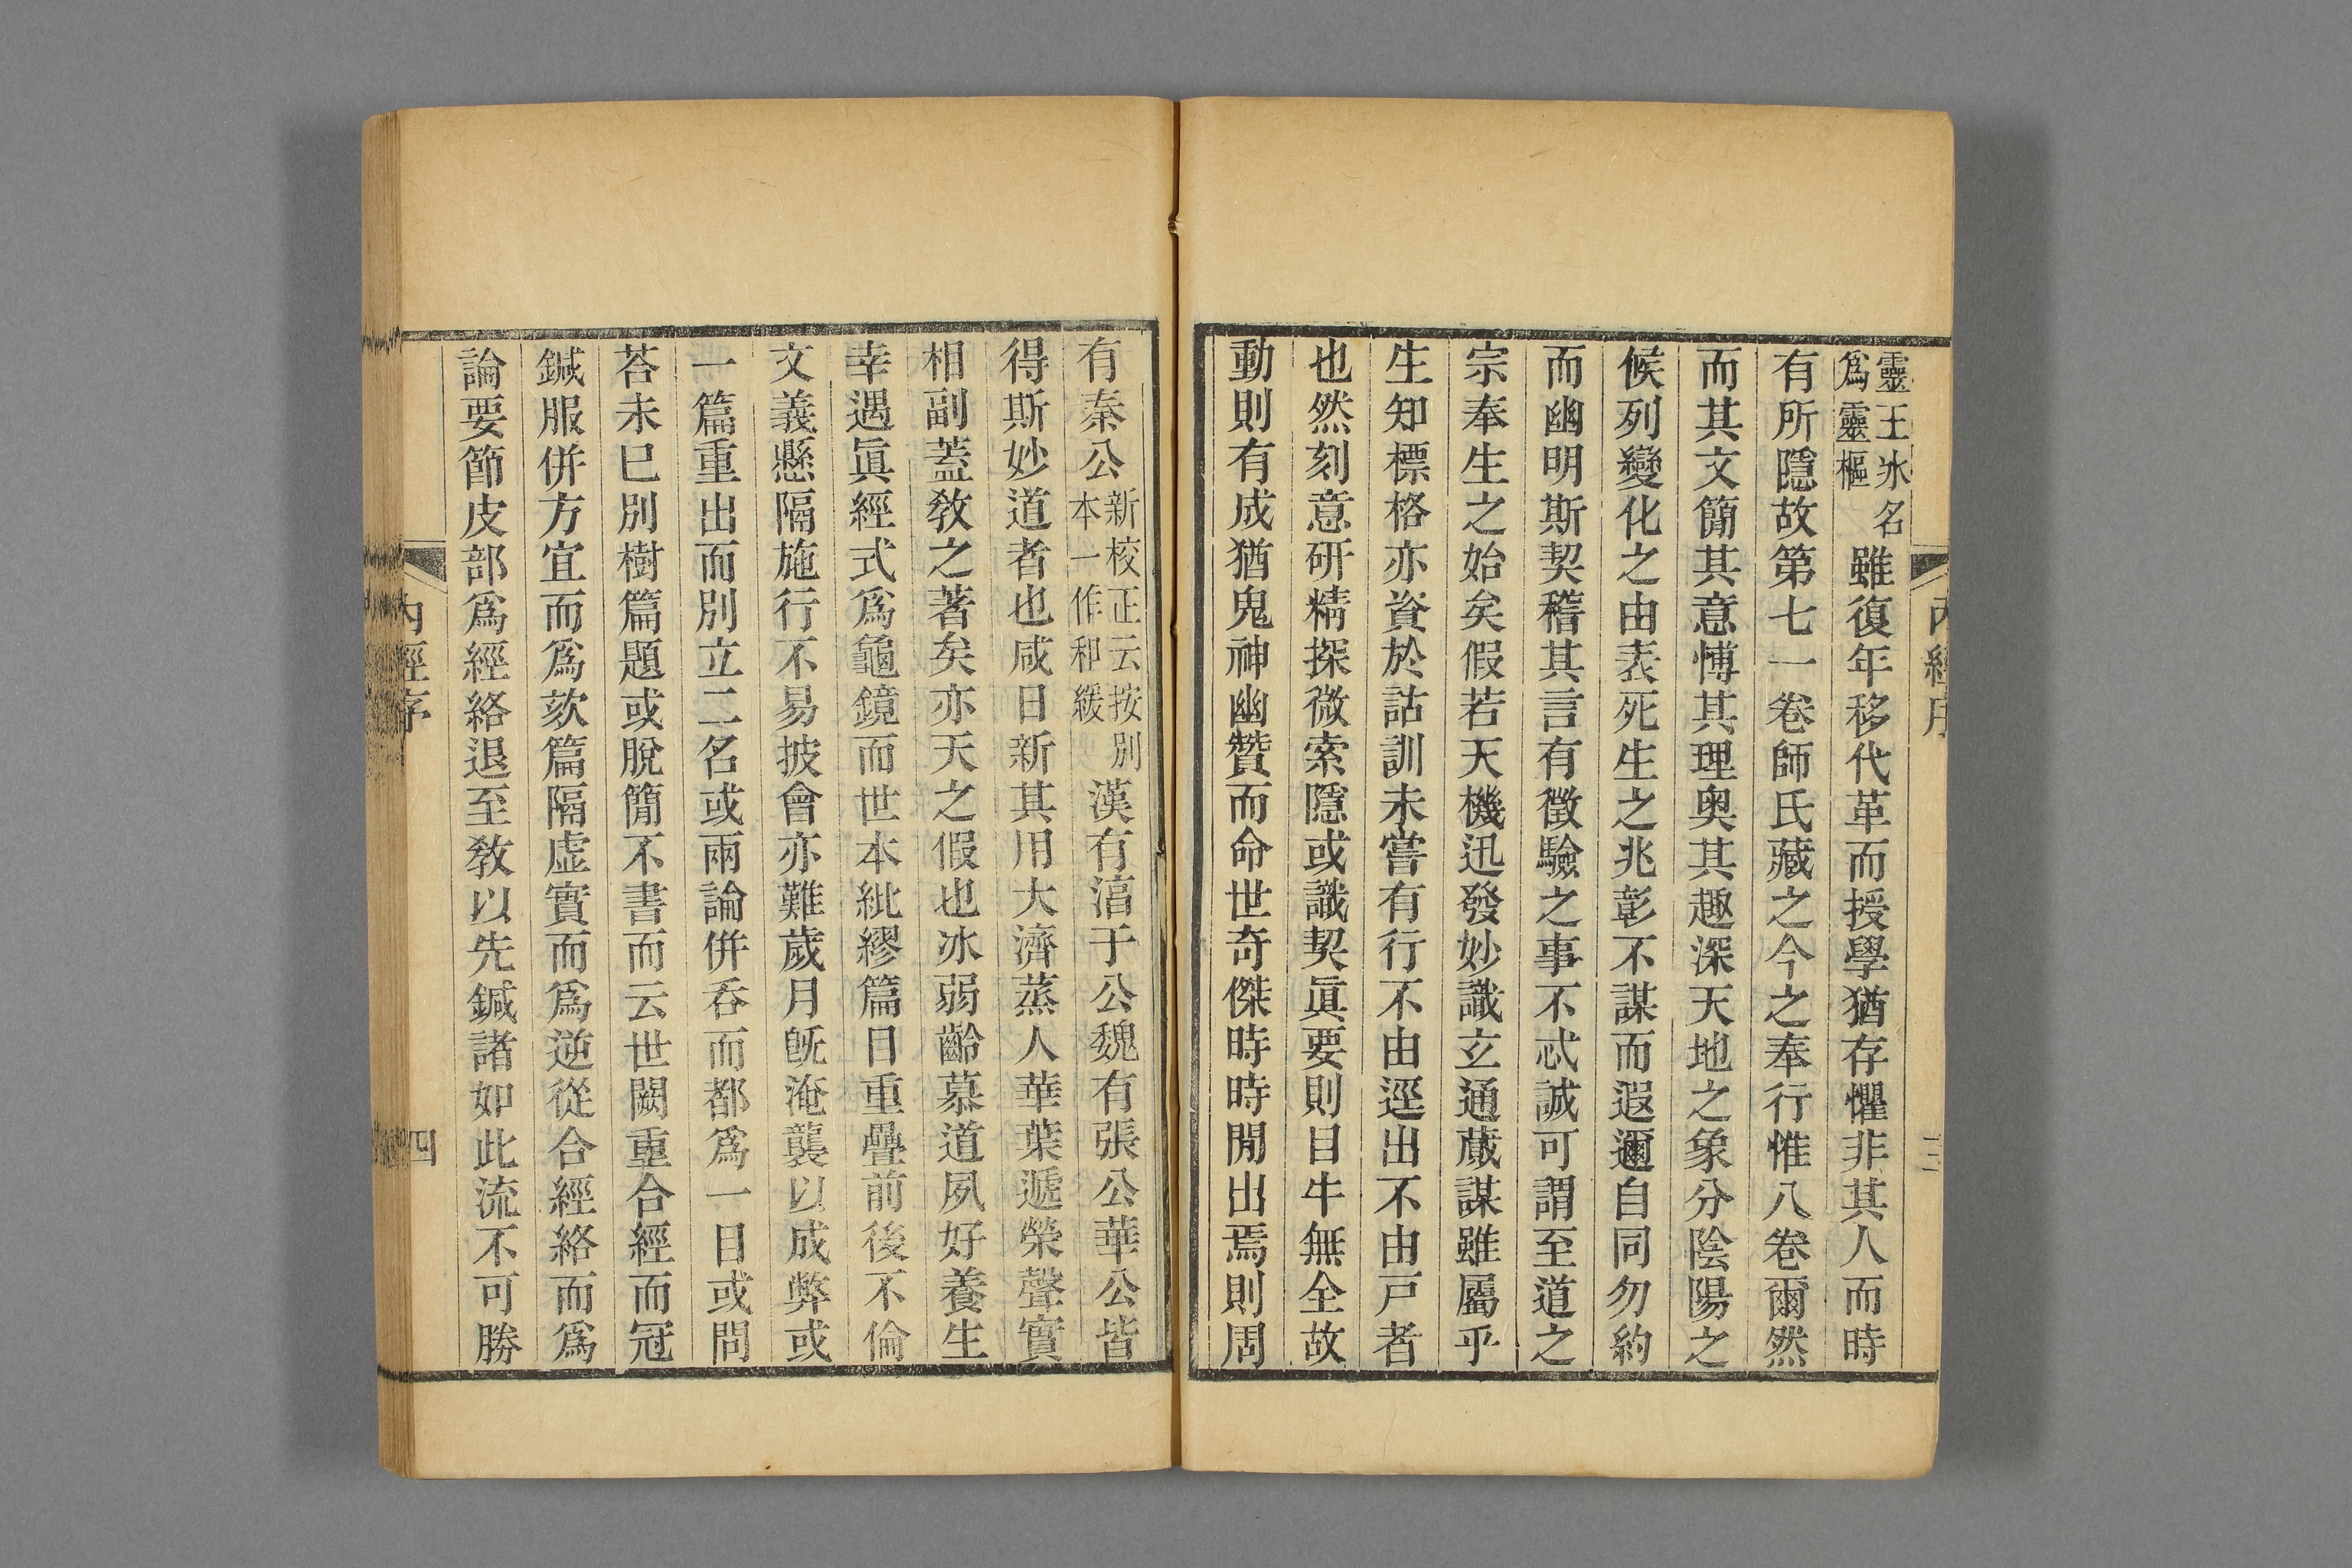 內經序
三
靈王冰名
爲靈樞
雖復年移代革而授學猶存懼非其人而時
有所隱故第七一卷師氏藏之今之奉行惟八卷爾然
而其文簡其意博其理奥其趣深天地之象分陰陽之
候列變化之由表死生之兆彰不謀而遐邇自同勿約
而幽明斯契稽其言有徵驗之事不忒誠可謂至道之
宗奉生之始矣假若天機迅發妙識玄通蕆謀雖屬乎
生知標格亦資於詁訓未嘗有行不由逕出不由戸者
也然刻意研精探微索隱或識契眞要則目牛無全故
動則有成猶鬼神幽贊而命世奇傑時時閒出焉則周
有秦公
新校正云按别
本一作和緩
漢有湻于公魏有張公華公皆
得斯妙道者也咸日新其用大濟蒸人華葉遞榮聲實
相副蓋敎之著矣亦天之假也冰弱齡慕道夙好養生
幸遇眞經式爲龜鏡而世本紕繆篇目重疊前後不倫
文義懸隔施行不易披會亦難歲月旣淹襲以成弊或
一篇重出而別立二名或兩論併吞而都爲一目或問
荅未已別樹篇題或脫簡不書而云世闕重合經而冠
鍼服併方宜而爲欬篇隔虛實而爲逆從合經絡而爲
論要節皮部爲經絡退至敎以先鍼諸如此流不可勝
內經序
四